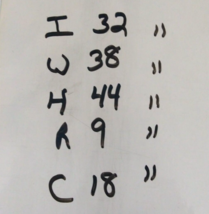 I 32 "
W 38 "
H 44 "
R 9 "
C 18 "